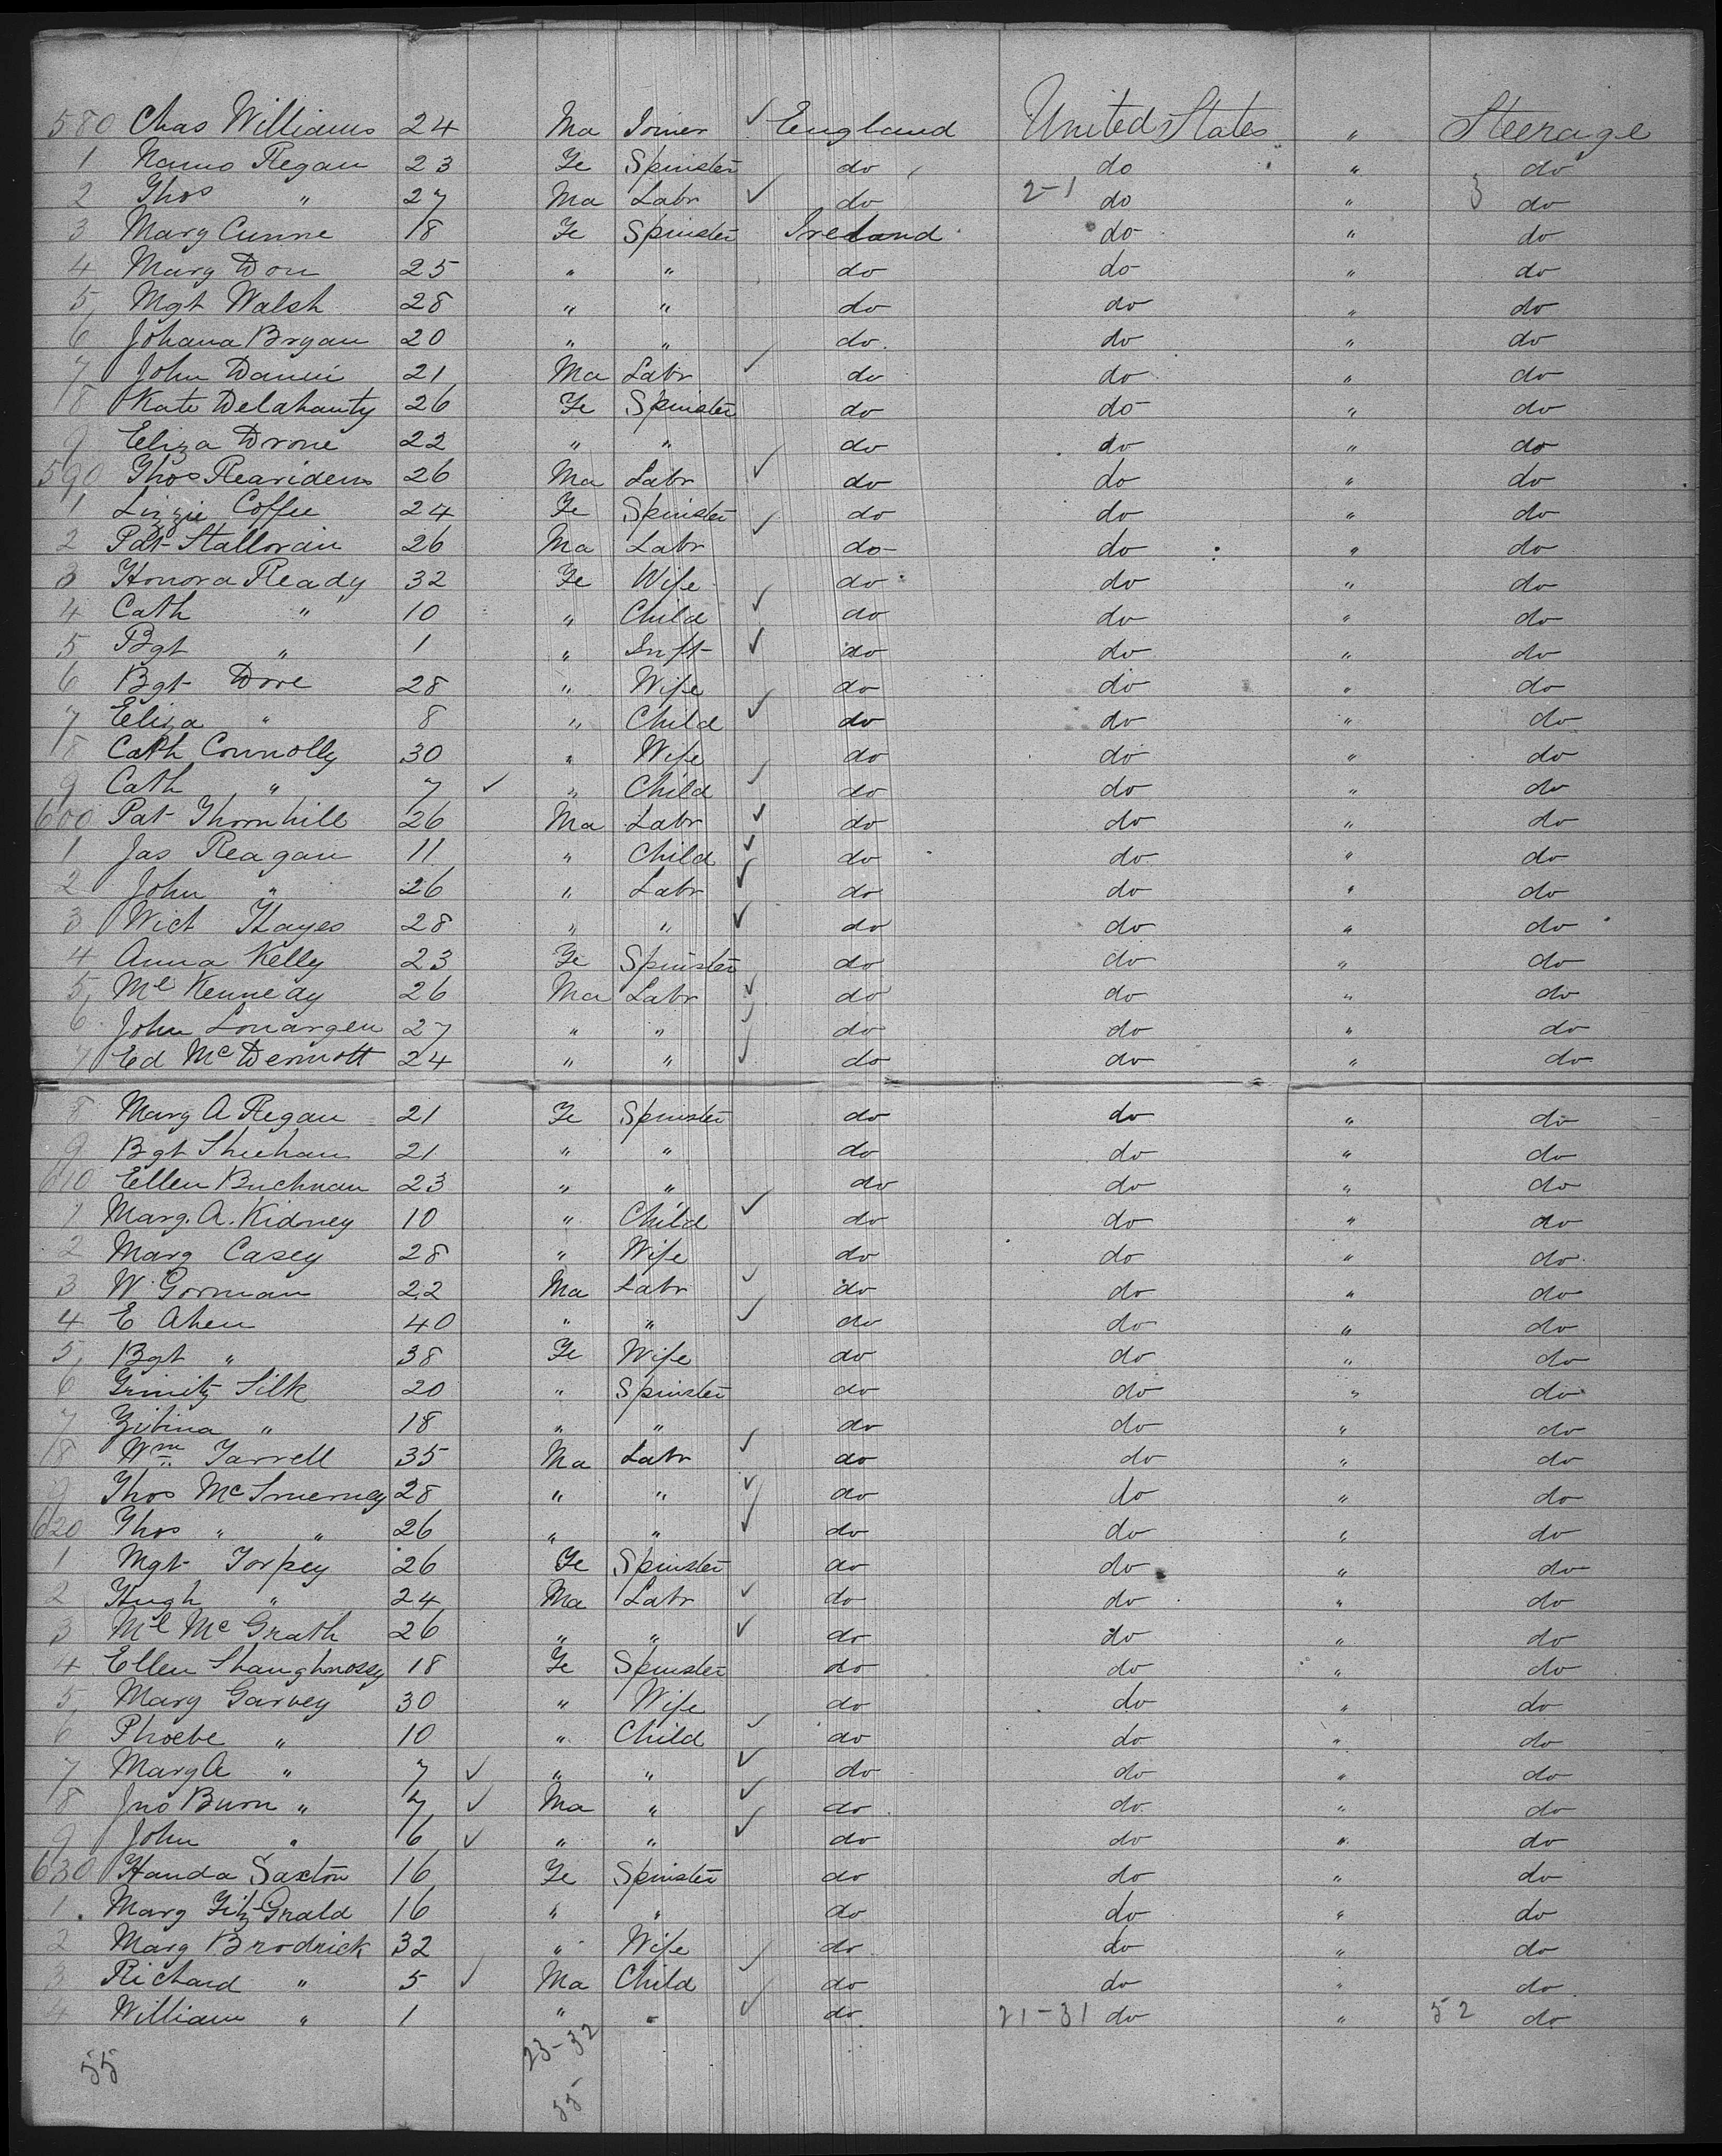 580 Chas Williams 24 Ma Joiner ✓ England United States " Steerage
1 Nano Regan 23 Fe Spinster do do " do
2 Thos " 27 Ma Labr ✓ do 2-1 do " 3 do
3 Mary Cunne 18 Fe Spinster Ireland do " do
4 Mary Don 25 " " do do " do
5 Mgt Walsh 28 " " do do " do
6 Johana Bryan 20 " " do do " do
7 John 21 Ma Labr ✓ do do " do
8 Kate Delahanty 26 Fe Spinster do do " do
9 Eliza Drone 22 " " do do " do
590 Thos Rearidens 26 Ma Labr ✓ do do " do
1 Lizzie Coffee 24 Fe Spinster do do " do
2 Pat Halloran 26 Ma Labr ✓ do do " do
3 Honora Ready 32 Fe Wife do do " do
4 Cath " 10 " Child ✓ do do " do
5 Bgt " 1 " Inft ✓ do do " do
6 Bgt Dore 28 " Wife do do " do
7 Eliza " 8 " Child ✓ do do " do
8 Cath Connolly 30 " Wife do do " do
9 Cath " 7 ✓ " Child ✓ do do " do
600 Pat Thornhill 26 Ma Labr ✓ do do " do
1 Jas Reagan 11 " Child ✓ do do " do
2 John " 26 " Labr ✓ do do " do
3 Mich Hayes 28 " " ✓ do do " do
4 Anna Kelly 23 Fe Spinster do do " do
5 Ml Kennedy 26 Ma Labr ✓ do do " do
6 John Lonargen 27 " " ✓ do do " do
7 Ed McDermott 24 " " ✓ do do " do
8 Mary A Regan 21 Fe Spinster do do " do
9 Bgt Sheehan 21 " " do do " do
610 Ellen Buchnan 23 " " do do " do
1 Marg. A. Kidney 10 " Child ✓ do do " do
2 Marg Casey 28 " Wife do do " do
3 W Gorman 22 Ma Labr ✓ do do " do
4 E Ahen 40 " " ✓ do do " do
5 Bgt " 38 Fe Wife do do " do
6 Silk 20 " Spinster do do " do
7 " 18 " " do do " do
8 Wm Farrell 35 Ma Labr ✓ do do " do
9 Thos McInerney 28 " " ✓ do do " do
620 Thos " " 26 " " ✓ do do " do
1 Mgt Torpey 26 Fe Spinster do do " do
2 Hugh " 24 Ma Labr ✓ do do " do
3 Ml McGrath 26 " " ✓ do do " do
4 Ellen Shaughnossy 18 Fe Spinster do do " do
5 Mary Garvey 30 " Wife do do " do
6 Phoebe " 10 " Child ✓ do do " do
7 Mary A " 7 ✓ " " ✓ do do " do
8 Jno Burn " 7 ✓ Ma " ✓ do do " do
9 John " 6 ✓ " " ✓ do do " do
630 Handa Saxton 16 Fe Spinster do do " do
1 Marg FitzGrald 16 " " do do " do
2 Marg Brodrick 32 " Wife do do " do
3 Richard " 5 ✓ Ma Child ✓ do do " do
4 William " 1 " " ✓ do 21-31 do " 52 do
55 23-32
55